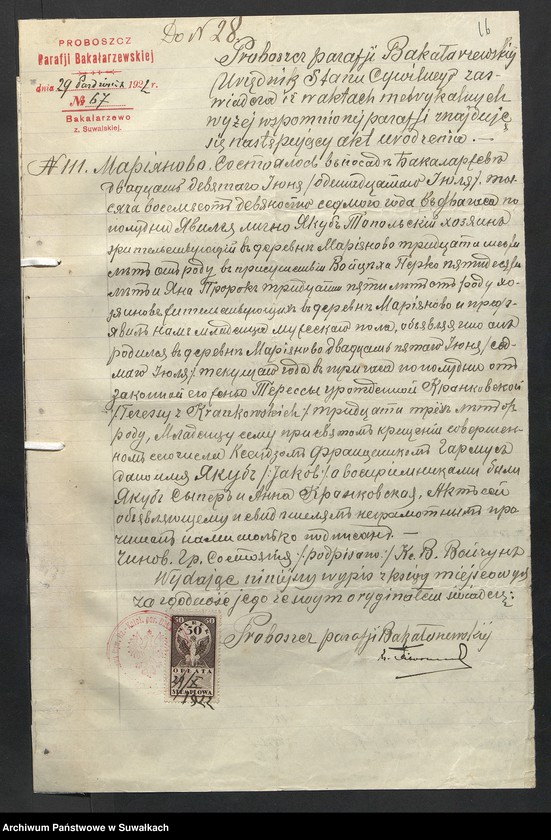 Do N 28.
16
PROBOSZCZ
Parafji Bakałarzewskiej
dnia 29 Października 1922 r.
№ 67
Bakałarzewo
z. Suwalskiej.
Proboszcz parafji Bakałarzewskiej
Urzędnik Stanu Cywilnego zaś-
wiadcza iż w aktach metrykalnych
wyżej wspomnionej parafji znajduje
się następujący akt urodzenia. —
N 111. Маріяново. Состоялось въ посадѣ Бакаларжевѣ
двадцать девятаго Іюня / одинадцатаго Іюля / ты-
сяча восемьсотъ девяносто седьмого года въ два часа по
полудни. Явился лично Якубъ Топольскій хозяинъ
жительствующій въ деревнѣ Маріяново тридцати
лѣтъ отъ роду въ присутствіи Войцѣха
лѣтъ и Яна Пророкъ тридцати пяти лѣтъ отъ роду хо-
зяиновъ жительствующихъ въ деревнѣ Маріяново и предъ-
явилъ намъ младенца мужескаго пола, объявляя что онъ
родился въ деревнѣ Маріяново двадцать пятаго Іюня / седь-
маго Іюля / текущаго года въ три часа по полудни отъ
законной его жены Терессы урожденной Кранковской
/ Teressy z Krankowskich / тридцати трехъ лѣтъ отъ
роду. Младенцу сему при святомъ крещеніи совершен-
номъ сего числа Ксендзомъ Францишкомъ
дано имя Якубъ /: Jakób :/ а воспріемниками были
Якубъ Сыперъ и Анна Кранковская. Актъ сей
объявляющему и свидѣтелямъ неграмотнымъ про-
читанъ нами только подписанъ. —
Чинов. Гр. Состоянія / подписано: / Кс. В.
Wydając niniejszy wypis z ksiąg miejscowych
za zgodność jego ze swym oryginałem świadczę:
Proboszcz parafji Bakałarzewskiej
50 50
50
OPŁATA
STEMPLOWA
29/X
1922
Archiwum Państwowe w Suwałkach